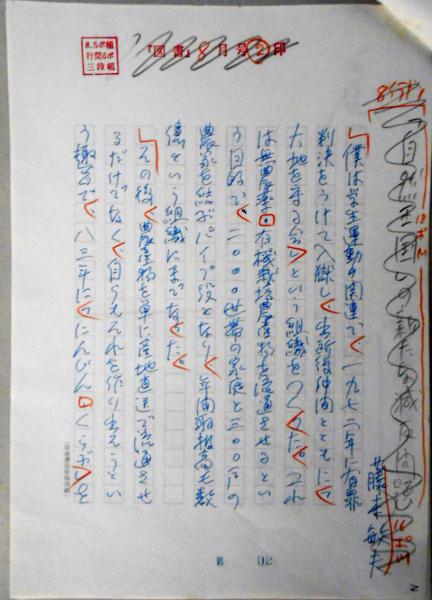 8.5ポ組
行間6ポ
三段組
『図書』8月号②印
藤本敏夫
「僕は学生運動の関連で、一九七二年に有罪
判決をうけて入獄し、出所後仲間とともに「
大地を守る会」という組織をつくった。これ
は無農薬・有機栽培農産物を流通させるとい
う目的で、二〇〇〇世帯の家庭と三〇〇戸の
農家を結ぶパイプ役となり、年間取扱高も数
億という組織にまでなった。
「その後、農産物を単に産地直送で流通させ
るだけでなく、自らそれを作り出そうとい
う趣旨で、八三年に、にんじん・くらぶ」を
岩 02
2